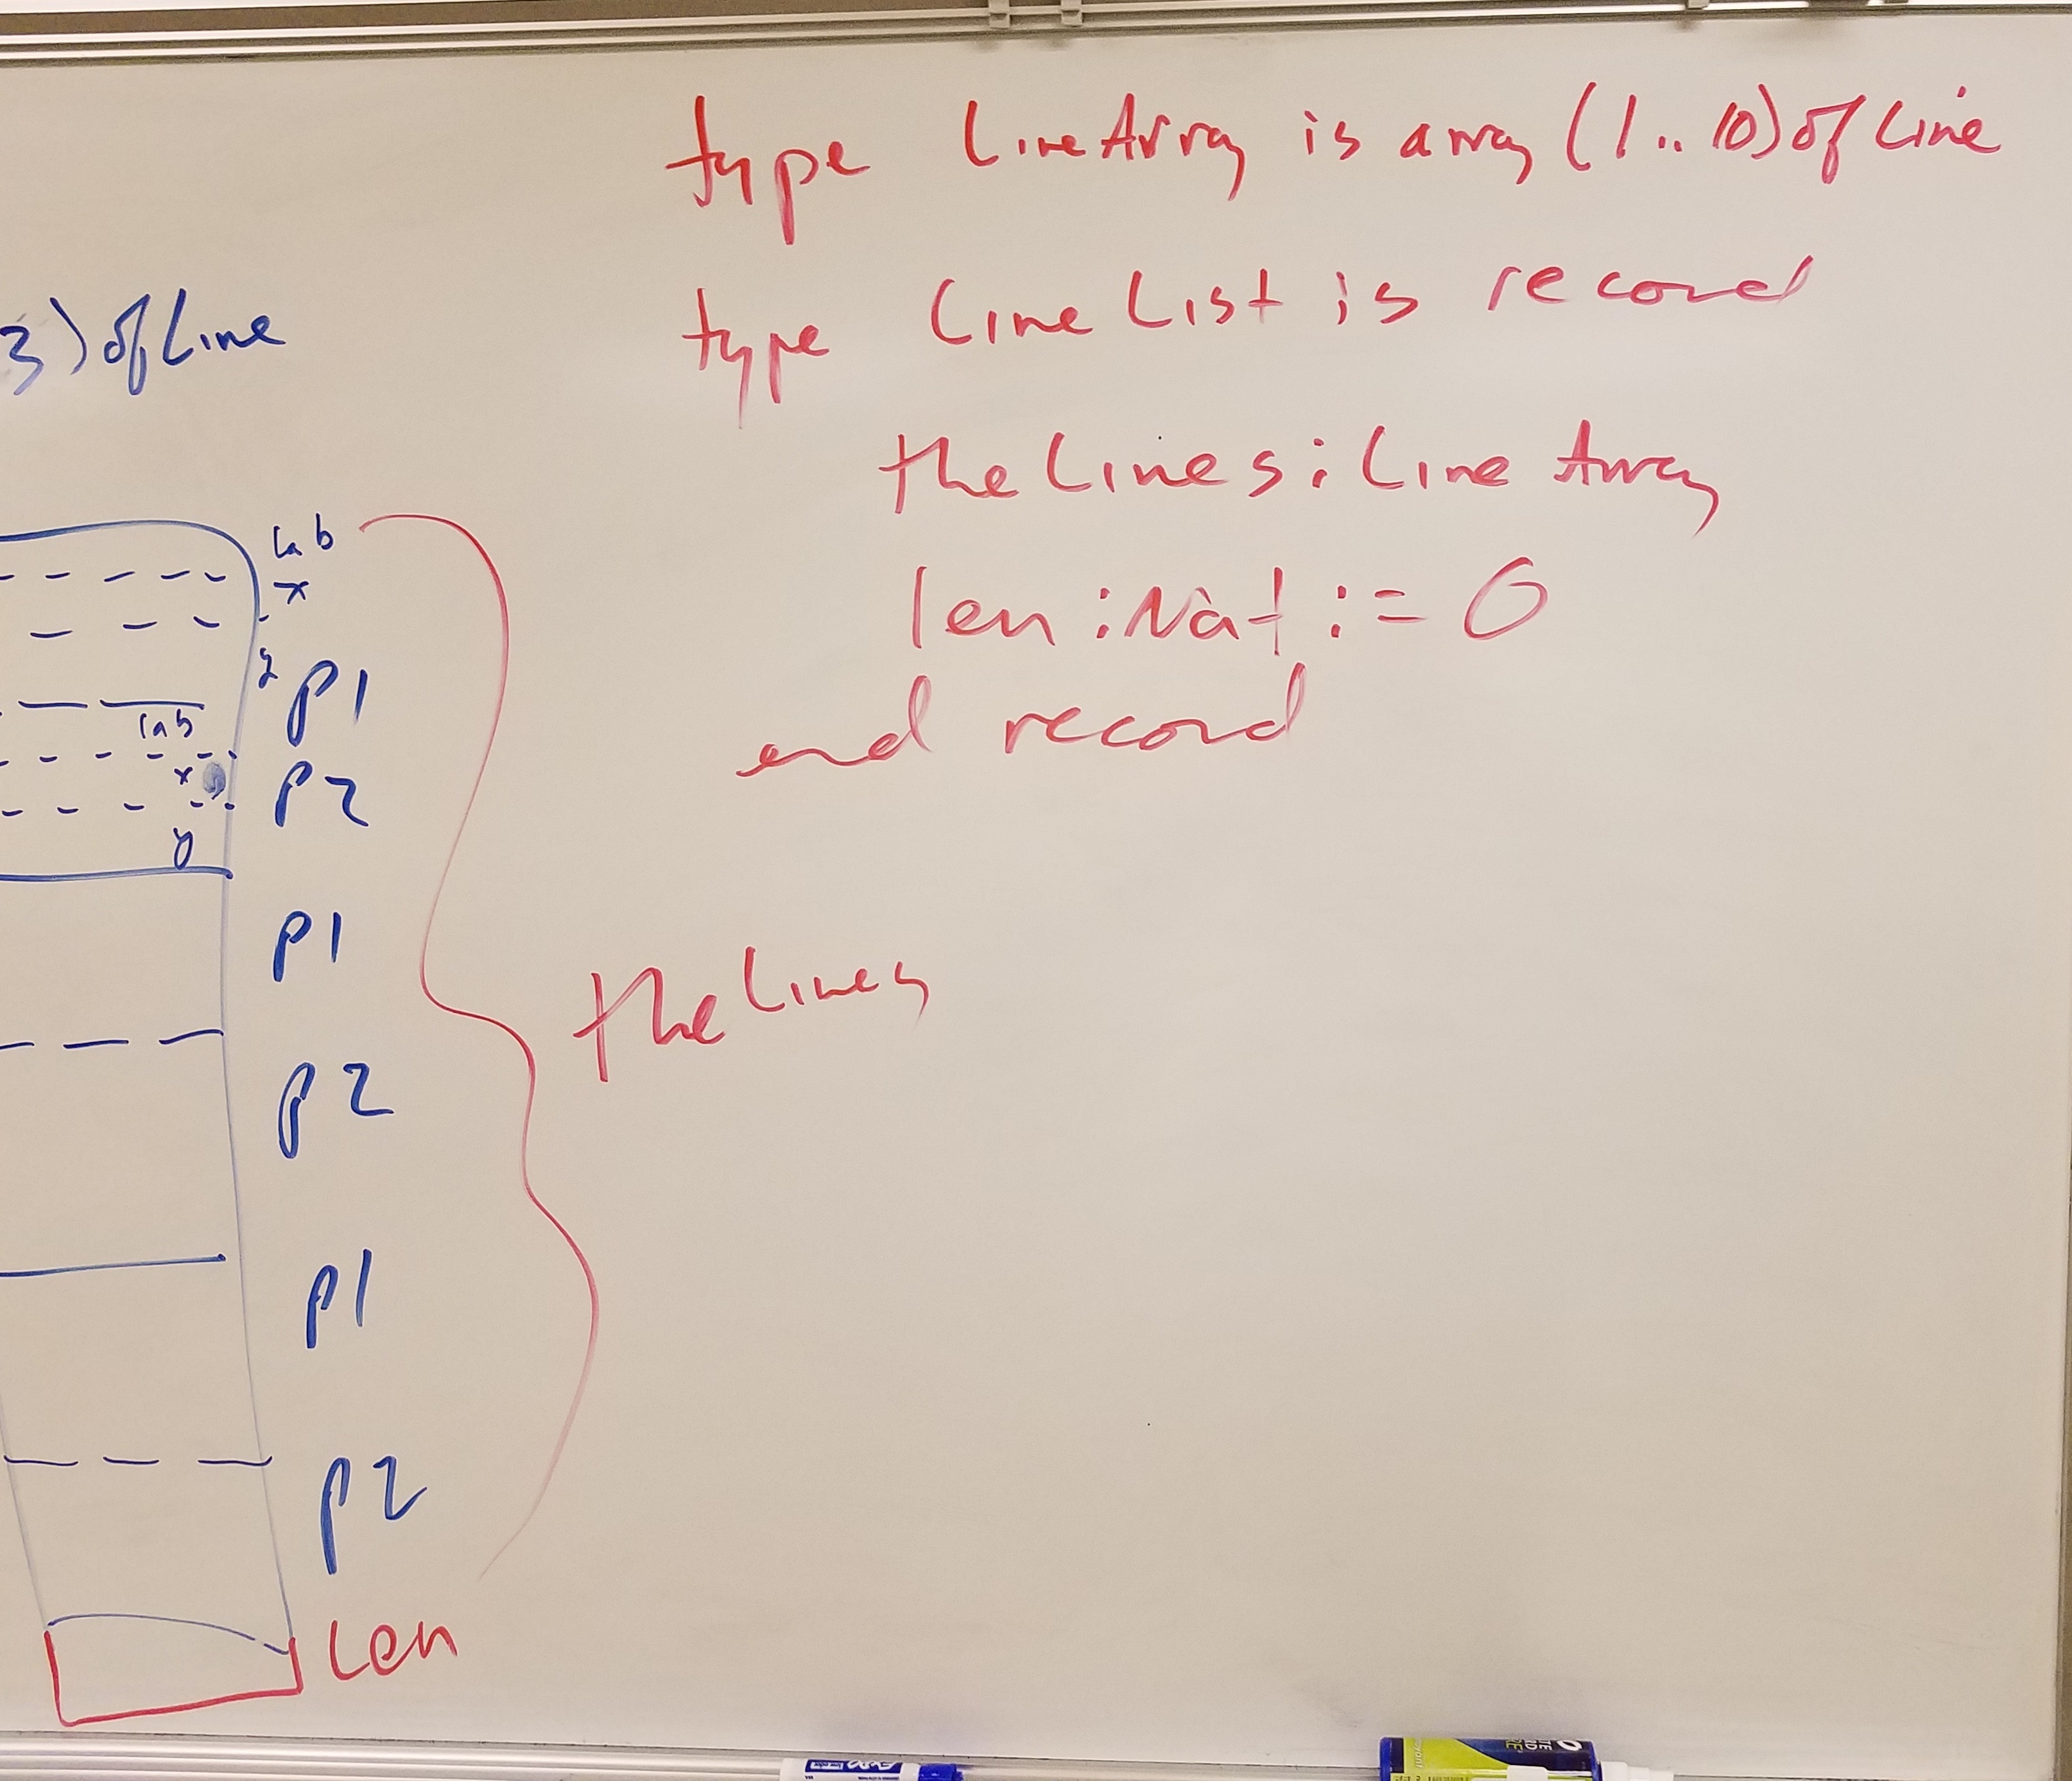 type LineArray is array (1..10) of Line
type LineList is record
theLines : LineArray
len : Nat := 0
end record
3) of Line
lab
x
y
p1
lab
x
p2
y
p1
p2
p1
p2
theLines
Len